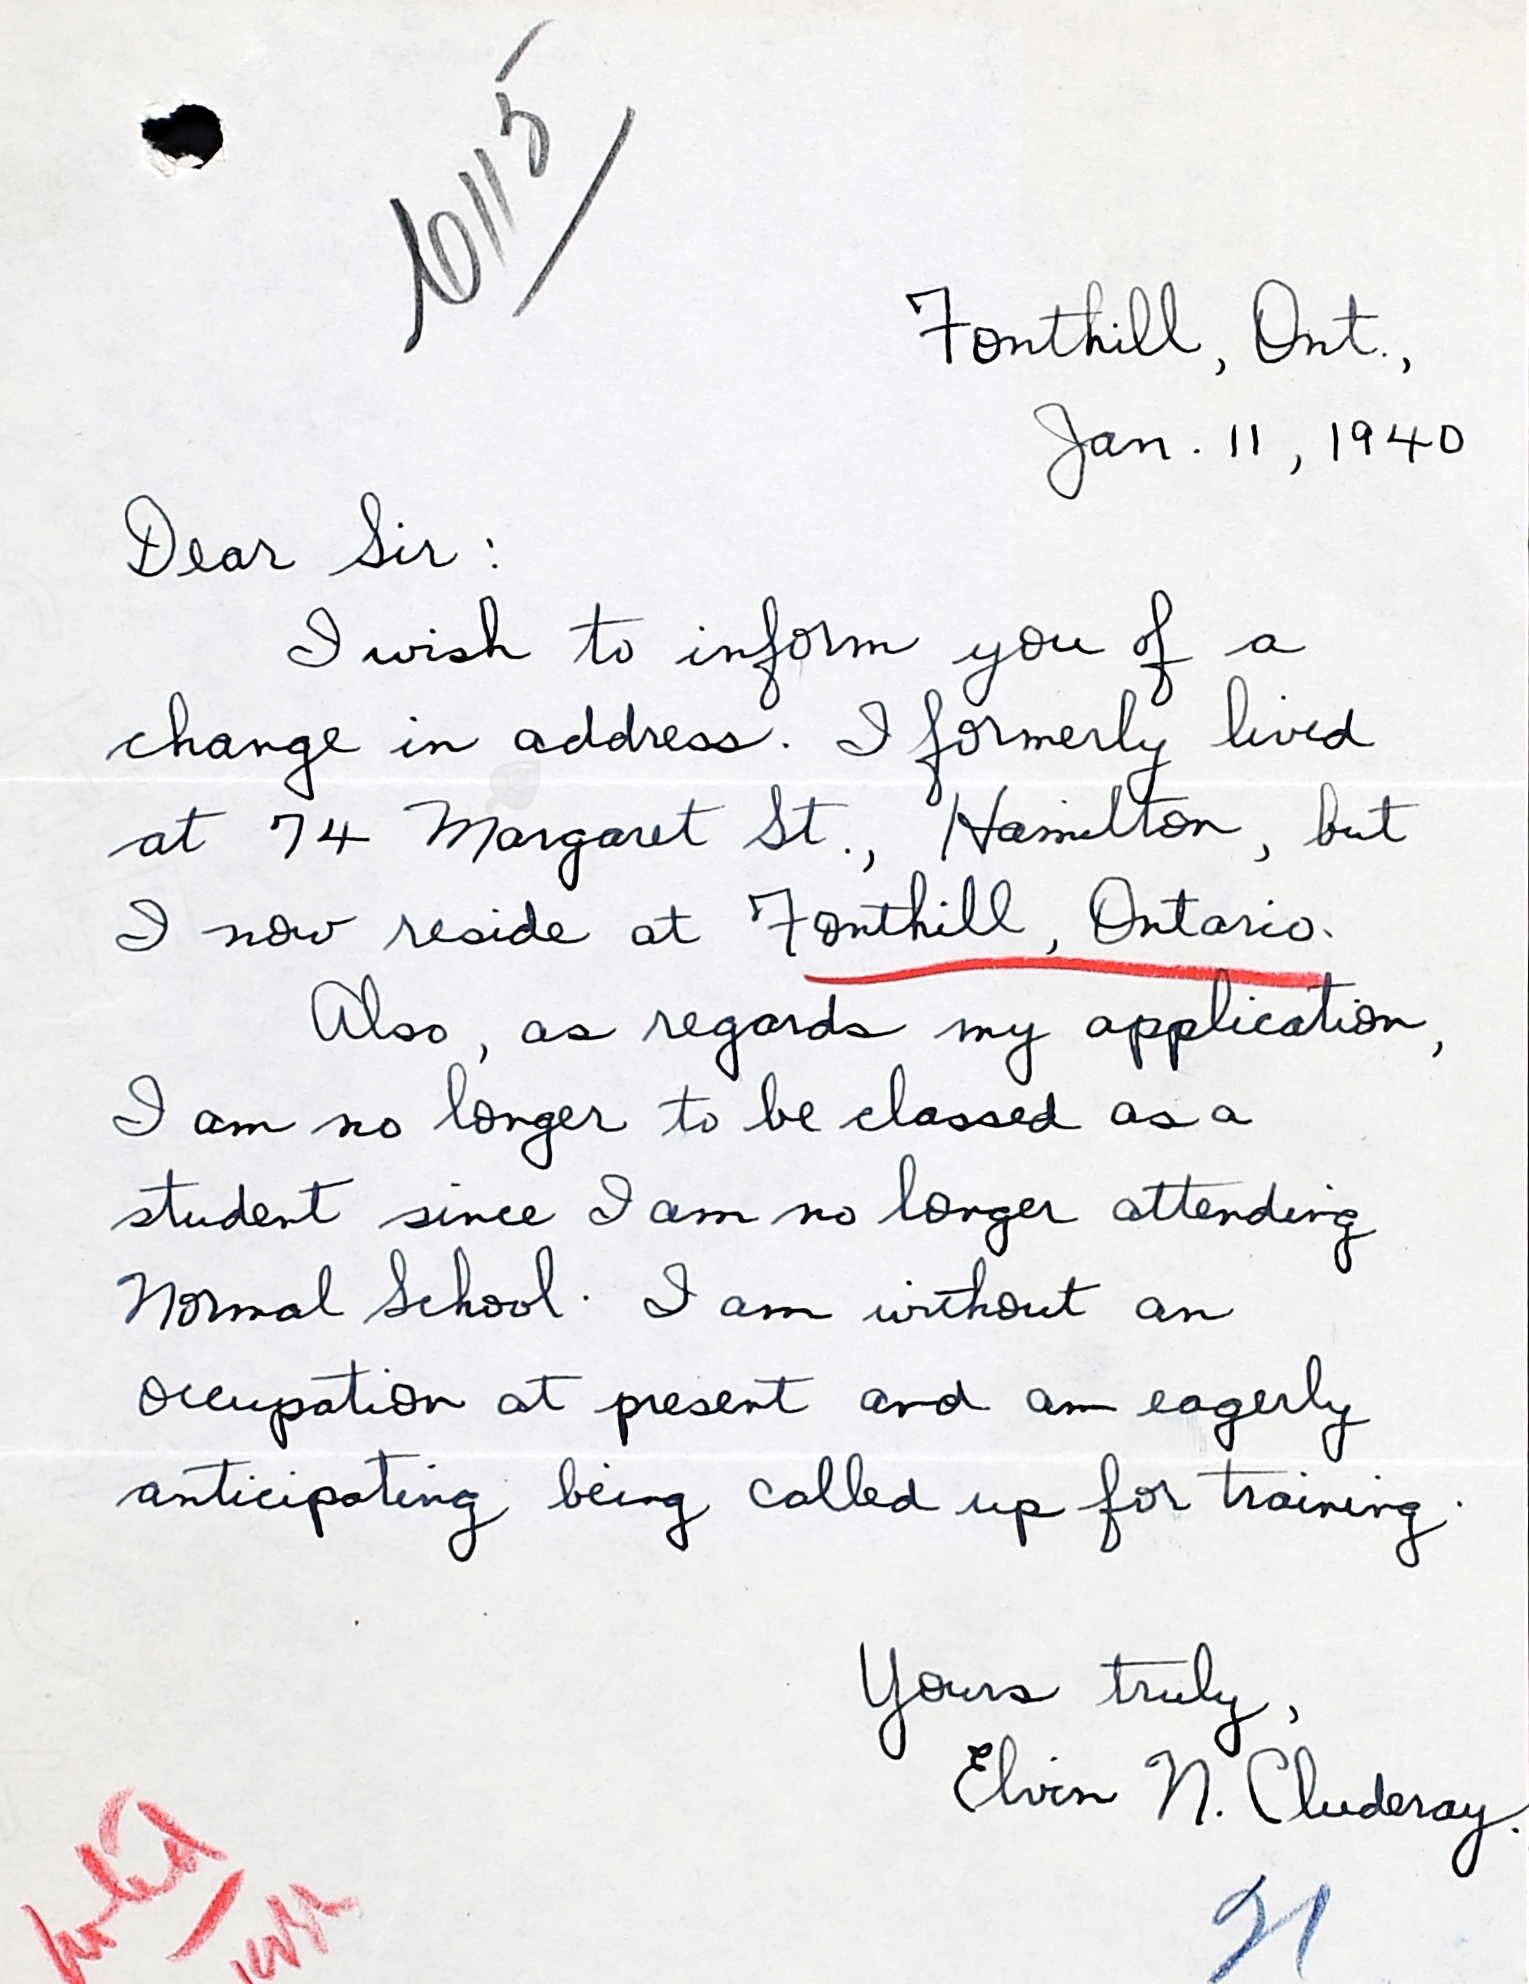 Fonthill, Ont.,
Jan. 11, 1940
Dear Sir:
I wish to inform you of a
change in address. I formerly lived
at 74 Margaret St., Hamilton, but
I now reside at Fonthill, Ontario.
Also, as regards my application,
I am no longer to be classed as a
student since I am no longer attending
Normal School. I am without an
occupation at present and am eagerly
anticipating being called up for training.
Yours truly,
Elvin N. Cluderay.
21